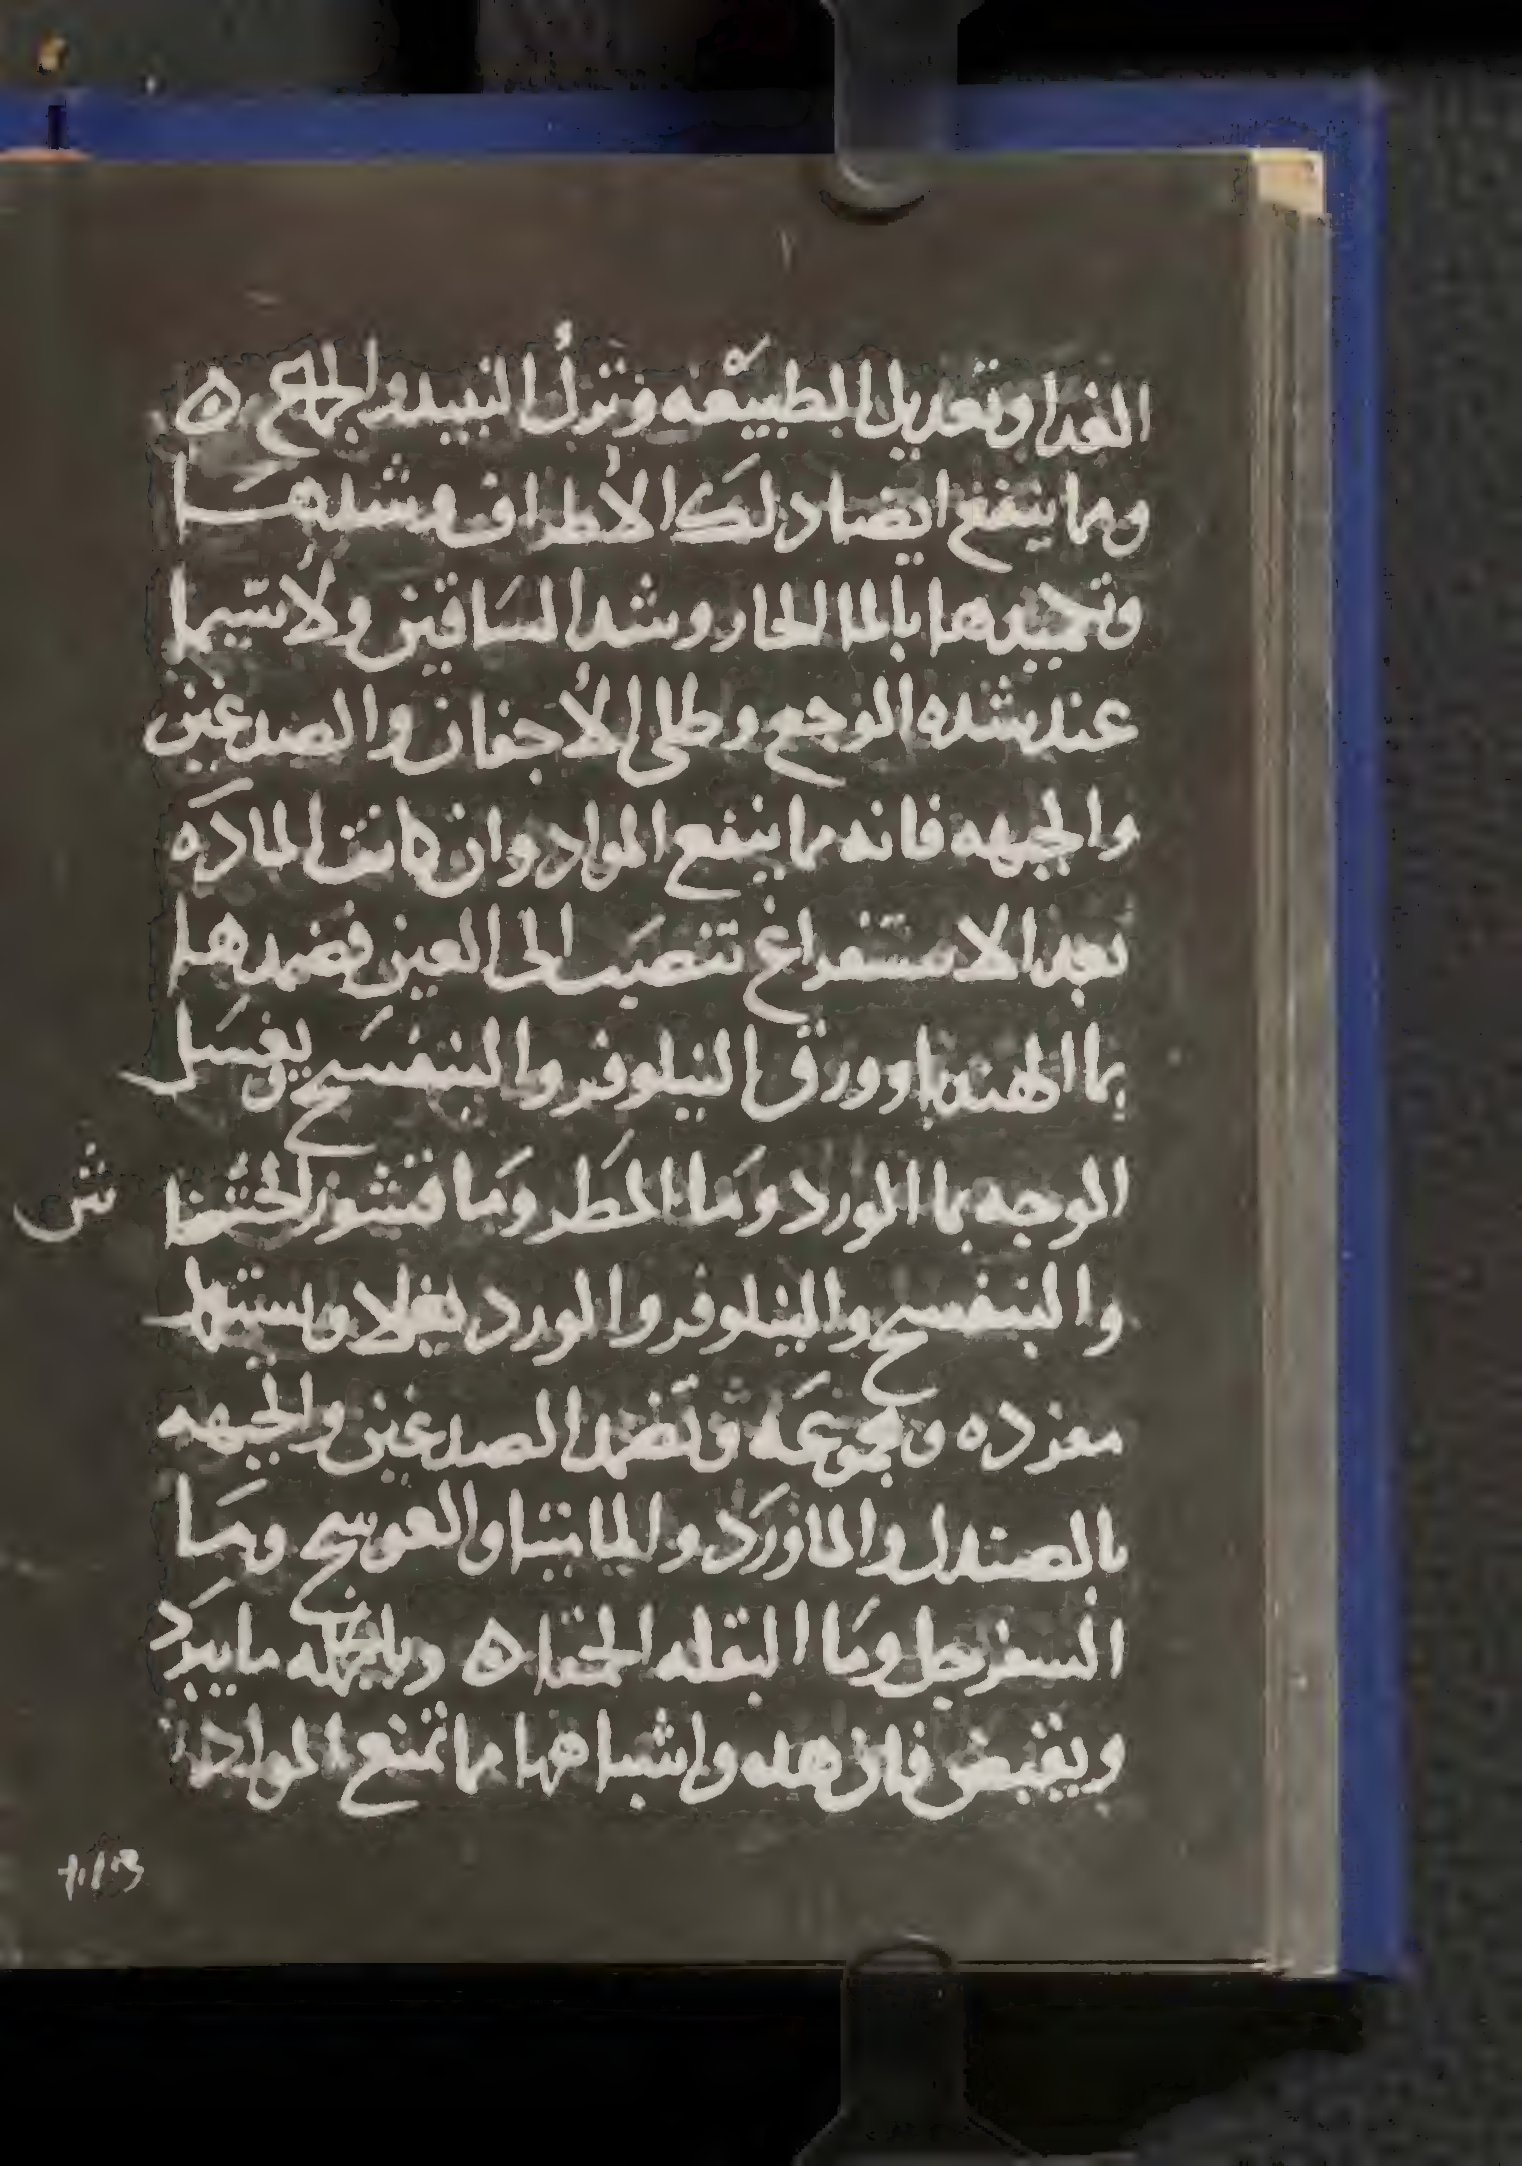 الغدا وتعديل الطبيعه وترك النبيد والجماع ه
ومما ينفع ايضا دلك الاطراف وشدها
وتحميدها بالما الحار وشد الساقين ولا سيما
عند شده الوجع وطلى الاجفان والصدغين
والجبهه فانه مما ينفع المواد وان كانت الماده
بعد الاستفراغ تنصب الى العين فضمدها
بما الهندبا وورق النيلوفر والبنفسج ويغسل
الوجه بما الورد وما المطر وما قشور الخشخاش
والبنفسج والنيلوفر والورد يغلا ويستعمل
مفرده ومجموعه وتضمد الصدغين والجبهه
بالصندل والماورد والماميثا والعوسج وما
السفرجل وما البقله الحمقا ه وبالجمله ما يبرد
ويقبض فان هذه واشباهها مما تمنع المواد